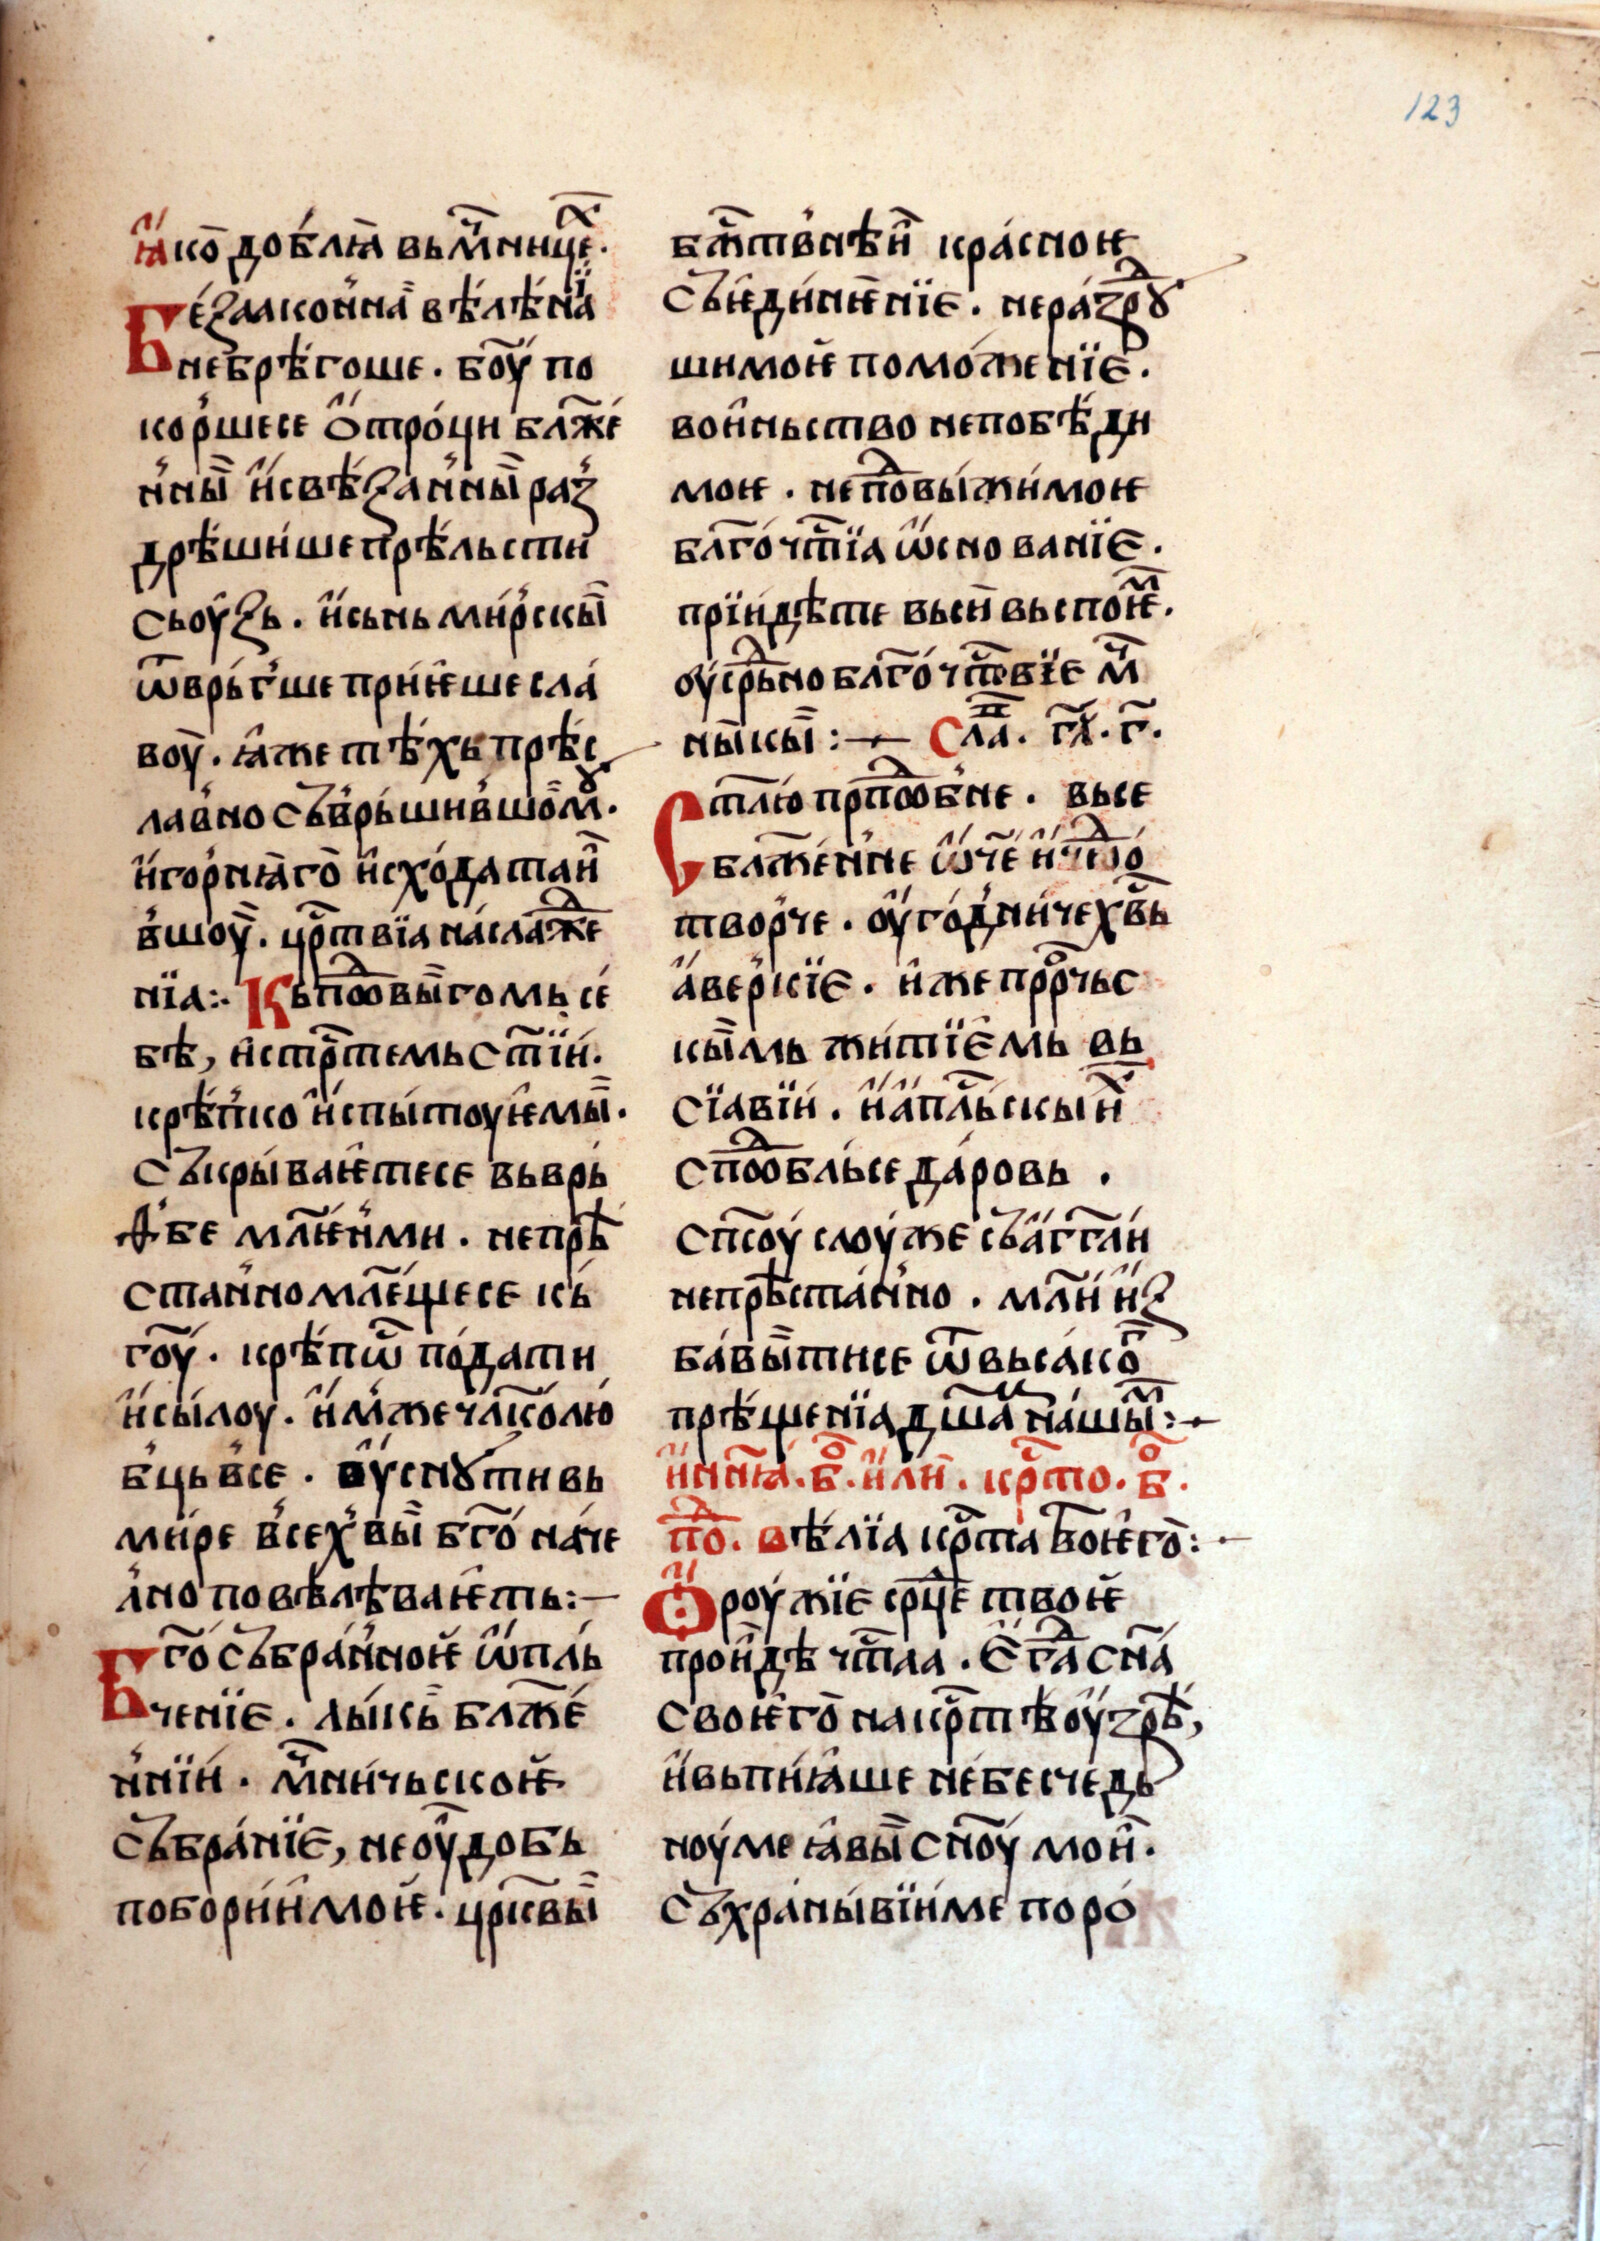 123
ꙗ҆́ко̀ до́блꙗ̀ вьмⷱ҇ницеⷯ.
Беꙁаако́н̾наа̀ вѣлѣ́нїа
небрѣ́гоше. бо҃у по
кор̾шесе ѻ҆́троци блаⷤ҇е́
н̾ныи҆̀ и҆свѣ́ꙁан̾ныи҆̀ раꙁ̾
дрѣши́ше прѣ́льсти
сьоу́ꙁь. и҆сьнь ми́р̾скыи҆̀
ѿврь́г̾ше прие҆́ше сла́
воу̀. ꙗ҆́же тѣ́хь прѣс
лав̾но съвръшив̾шо́мꙋ̀.
и҆го́рнꙗ̀го̀ и҆схо́датаи҆̀
в̾шоу̀. црⷭ҇твїа насла́жⷣе
нїа:. Кьпⷣовыго́мь се́
бѣ, и҆стрⷭ҇темь ст҃їи́.
крѣ́п̾ко и҆спы́тоуѥмыи҆̀.
Съкры́ваѥтесе вьврь́
дьбе мл҃ѥн̾ми. непрѣ
стан̾но мл҃е́щесе кь́
гоу҃. крѣ́пѡⷭ҇ пода́ти
и҆си́лоу. и҆м̾же чл҃колю́
б̾ць в̾се. оу҆снꙋ́ти вь
ми́ре в̾сех̾ вы̀ бг҃о́ на́че
л̾но повѣлѣва́ѥть:—
Бг҃о́ съвра́н̾ноѥ ѡ҆пль
че́нїе. лы́къ блаже́
н̾нїи́. мⷱ҇ни́чьскоѥ
събра́нїе, неоу҆до́бь
побори́и҆моѥ. црⷭ҇ковыи҆̀
бжⷭ҇тв̾нѣи҆̀ кра́сноѥ
съѥди́нѥнїе. нера́ꙁⷣрꙋ
шимоѥ помо́женїе.
вои҆ньство непобѣ́ди
моѥ. непⷣовы́жимоѥ
блг҃о́чⷭ҇тїа ѡ҆снова́нїе.
прїи́дѣте вьси́ вьспоѥⷨ҇.
оу҆срⷣьно блг҃о́чⷭ҇товїе мⷱ҇
ныкыи҆̀:— Слаⷡ҇. гл҃. г҃.
Ст҃лю́ прпⷣоб̾не. вьсе
блаже́н̾не ѡ҆́ч҃е и҆́чюⷣдо́
твор̾че. оу҆го́дничехвⷭ҇ь
а҆́вер̾кїе. и҆́же прⷪ҇рчьс
кы̀мь житїе́мь вь
сїавїи́. и҆́а҆пⷭ҇льскыи҆ⷯ
спⷣобль́се да́ровь.
сп҃соу слоу́же съа҆́гг҃ли
непрѣста́н̾но. мл҃и́ и҆ꙁ
ба́вы̀тисе ѿвьса́коⷢ҇
прѣ́щенїа дш҃аⷨ҇ на́шыⷨ҇:—
и҆ нн҃ꙗ. бⷪ҇. и҆лѝ. крⷭ҇то. бⷪ҇.
пⷣо. вѣ́лїа крⷭ҇та во́ѥго̀:—
Ѻ҆роу́жїе срⷣце твоѥ̀
прои҆́дѣ чⷭ҇таа. Є҆гⷣа̀ сн҃а́
своѥго̀ на крⷭ҇тѣ оу҆зрѣ́,
и҆вьпи́ꙗ҆ше небесчедь
ноу́ме ꙗ҆вы̀ сн҃оу мои҆̀.
съхра́ны́вїи́ме поро́